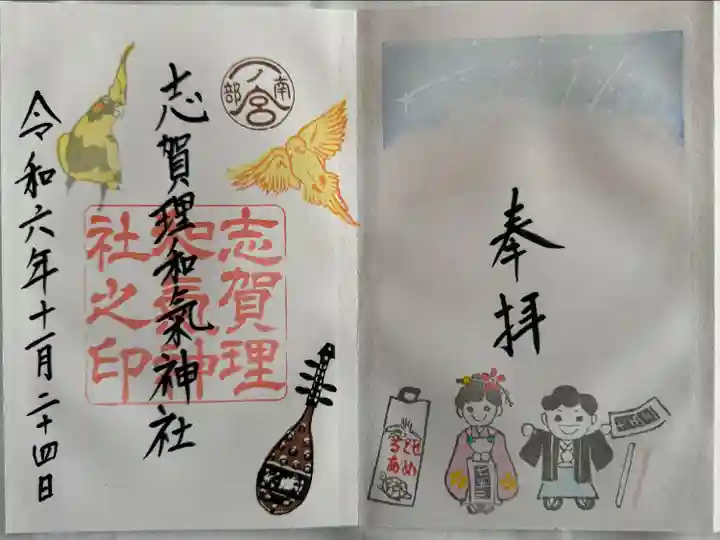 奉拝
南部
一ノ宮
志賀理和氣神社
志賀理
和氣神
社之印
令和六年十一月二十四日
ちとせ
あめ
七五三